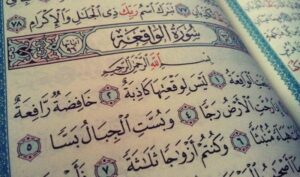 تَبَٰرَكَ ٱسْمُ رَبِّكَ ذِى ٱلْجَلَٰلِ وَٱلْإِكْرَامِ ٧٨
سُورَةُ الوَاقِعَةِ
بِسْمِ ٱللَّهِ ٱلرَّحْمَٰنِ ٱلرَّحِيمِ
ٱلْوَاقِعَةُ ١ لَيْسَ لِوَقْعَتِهَا كَاذِبَةٌ ٢ خَافِضَةٌ رَّافِعَةٌ
ٱلْأَرْضُ رَجًّا ٤ وَبُسَّتِ ٱلْجِبَالُ بَسًّا ٥
مُّنۢبَثًّا ٦ وَكُنتُمْ أَزْوَٰجًا ثَلَٰثَةً ٧